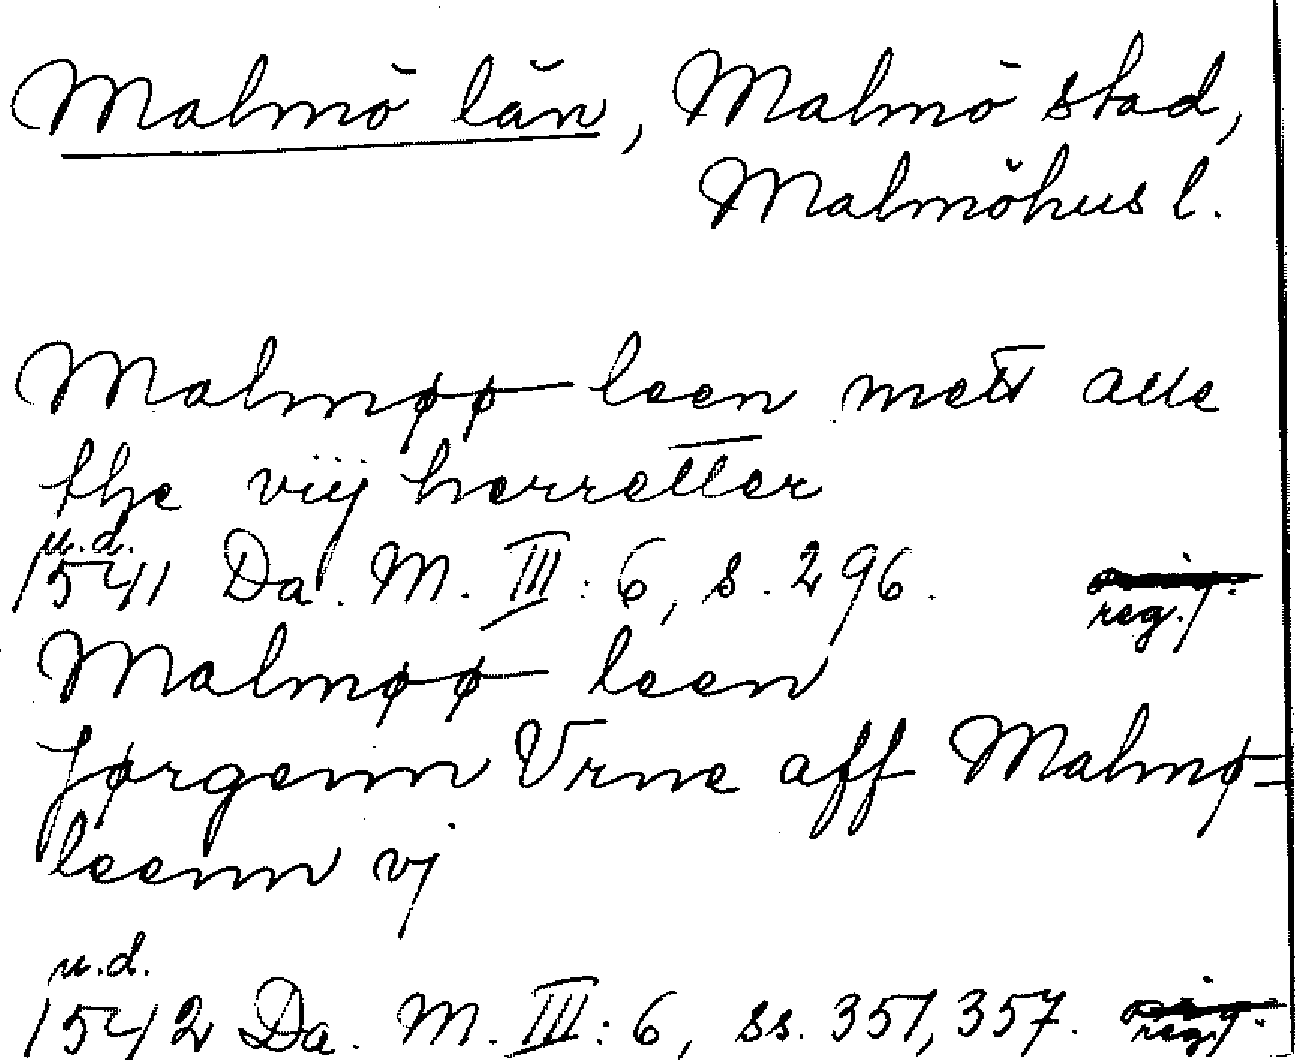 Malmö län, Malmö stad,
Malmöhus l.
Malmøø leen mett alle
the viij herretter
u.d.
1541 Da. M. III: 6, s. 296.
reg.
Malmøø leen
Jørgenn Vrne aff Malmø=
leenn vj
u.d.
1542 Da. M. III: 6, ss. 351, 357.
reg.